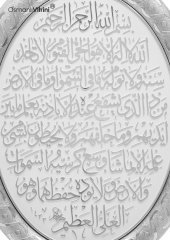 OsmanlıVitrini
بسم الله الرحمن الرحيم
الله لا إله إلا هو الحي القيوم لا تأخذه
سنة ولا نوم له ما في السموات وما في الأرض
من ذا الذي يشفع عنده إلا بإذنه يعلم ما بين
أيديهم وما خلفهم ولا يحيطون بشيء من
علمه إلا بما شاء وسع كرسيه السموات
والأرض ولا يؤده حفظهما وهو
العلي العظيم